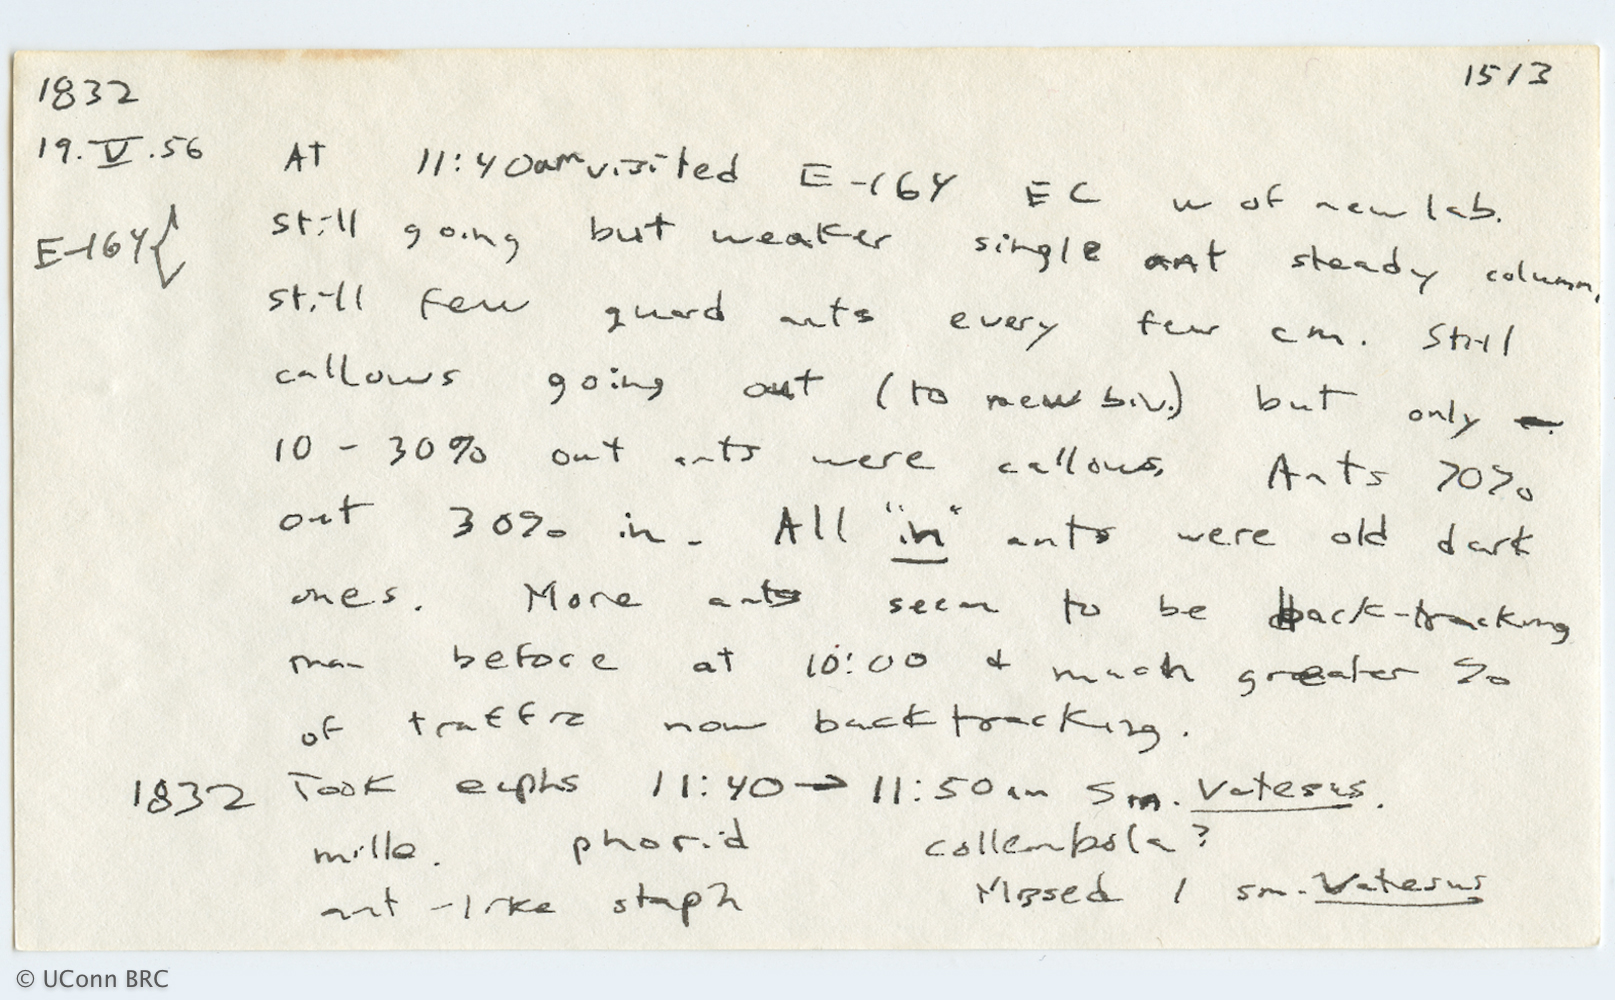 1832
1513
19.V.56 At 11:40am visited E-164 EC w of new lab.
E-164{ still going but weaker single ant steady column,
still few guard ants every few cm. Still
callows going out (to new biv.) but only
10 - 30% out ants were callows. Ants 70%
out 30% in. All "in" ants were old dark
ones. More ants seem to be back-tracking
than before at 10:00 & much greater %
of traffic now backtracking.
1832 Took ecphs 11:40 → 11:50am Sm. Vatesus.
mille. phorid collembola?
ant-like staph Missed 1 sm. Vatesus
© UConn BRC